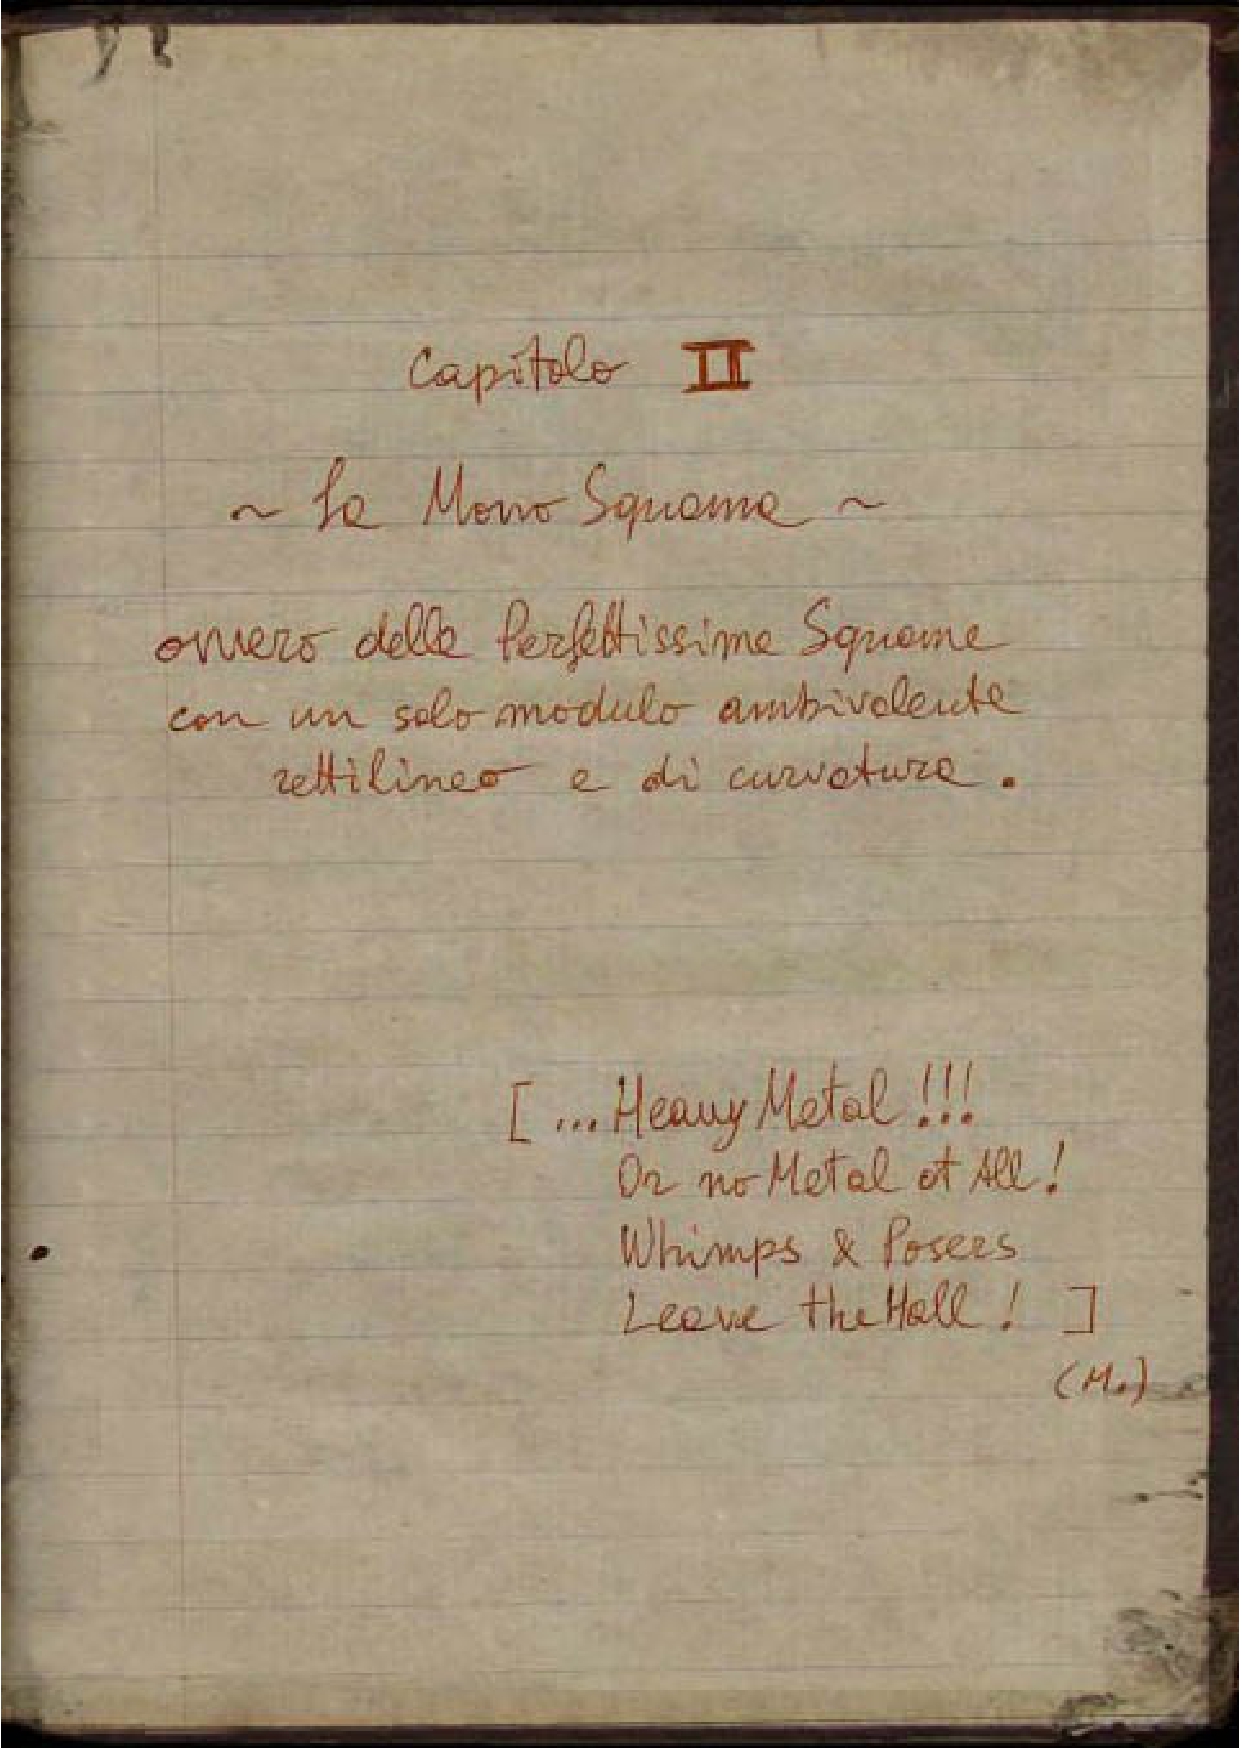 Capitolo II
~ La Mono Squama ~
ovvero della Perfettissima Squama
con un solo modulo ambivalente
rettilineo e di curvatura.
[ ... Heavy Metal !!!
Or no Metal at All !
Whimps & Posers
Leave the Hall ! ]
(M.)